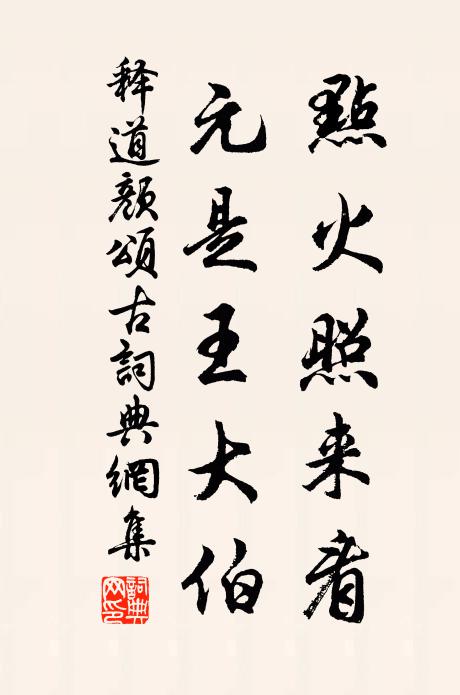 點火照来看
元是王大伯
释道顔頌古詞典網集
詞典网印